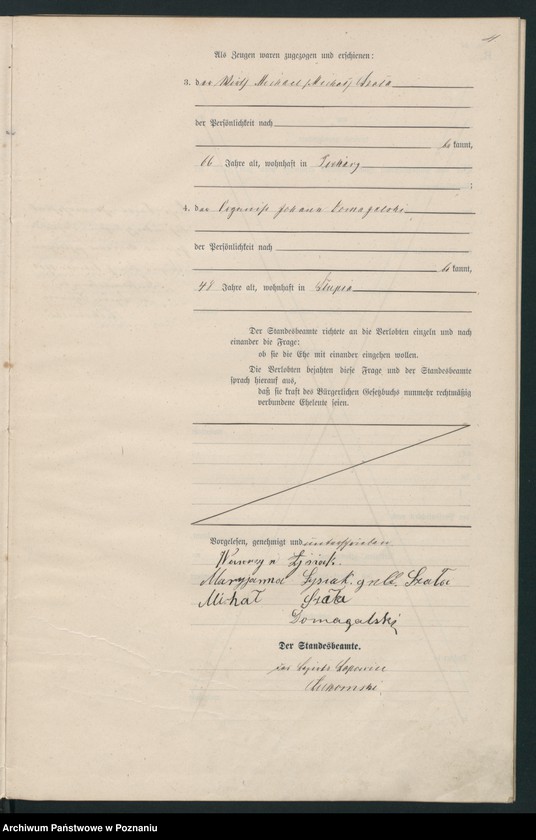 4
Als Zeugen waren zugezogen und erschienen:
3. der Wirth Michael (Michał) Szała
der Persönlichkeit nach
be kannt,
66 Jahre alt, wohnhaft in
;
4. der Johann Domagalski
der Persönlichkeit nach
be kannt,
48 Jahre alt, wohnhaft in Slupia
Der Standesbeamte richtete an die Verlobten einzeln und nach
einander die Frage:
ob sie die Ehe mit einander eingehen wollen.
Die Verlobten bejahten diese Frage und der Standesbeamte
sprach hierauf aus,
daß sie kraft des Bürgerlichen Gesetzbuchs nunmehr rechtmäßig
verbundene Eheleute seien.
Vorgelesen, genehmigt und unterschrieben
Łysiak.
Maryjanna Łysiak. Szała
Michał Szała
Domagalski
Der Standesbeamte.
Archiwum Państwowe w Poznaniu